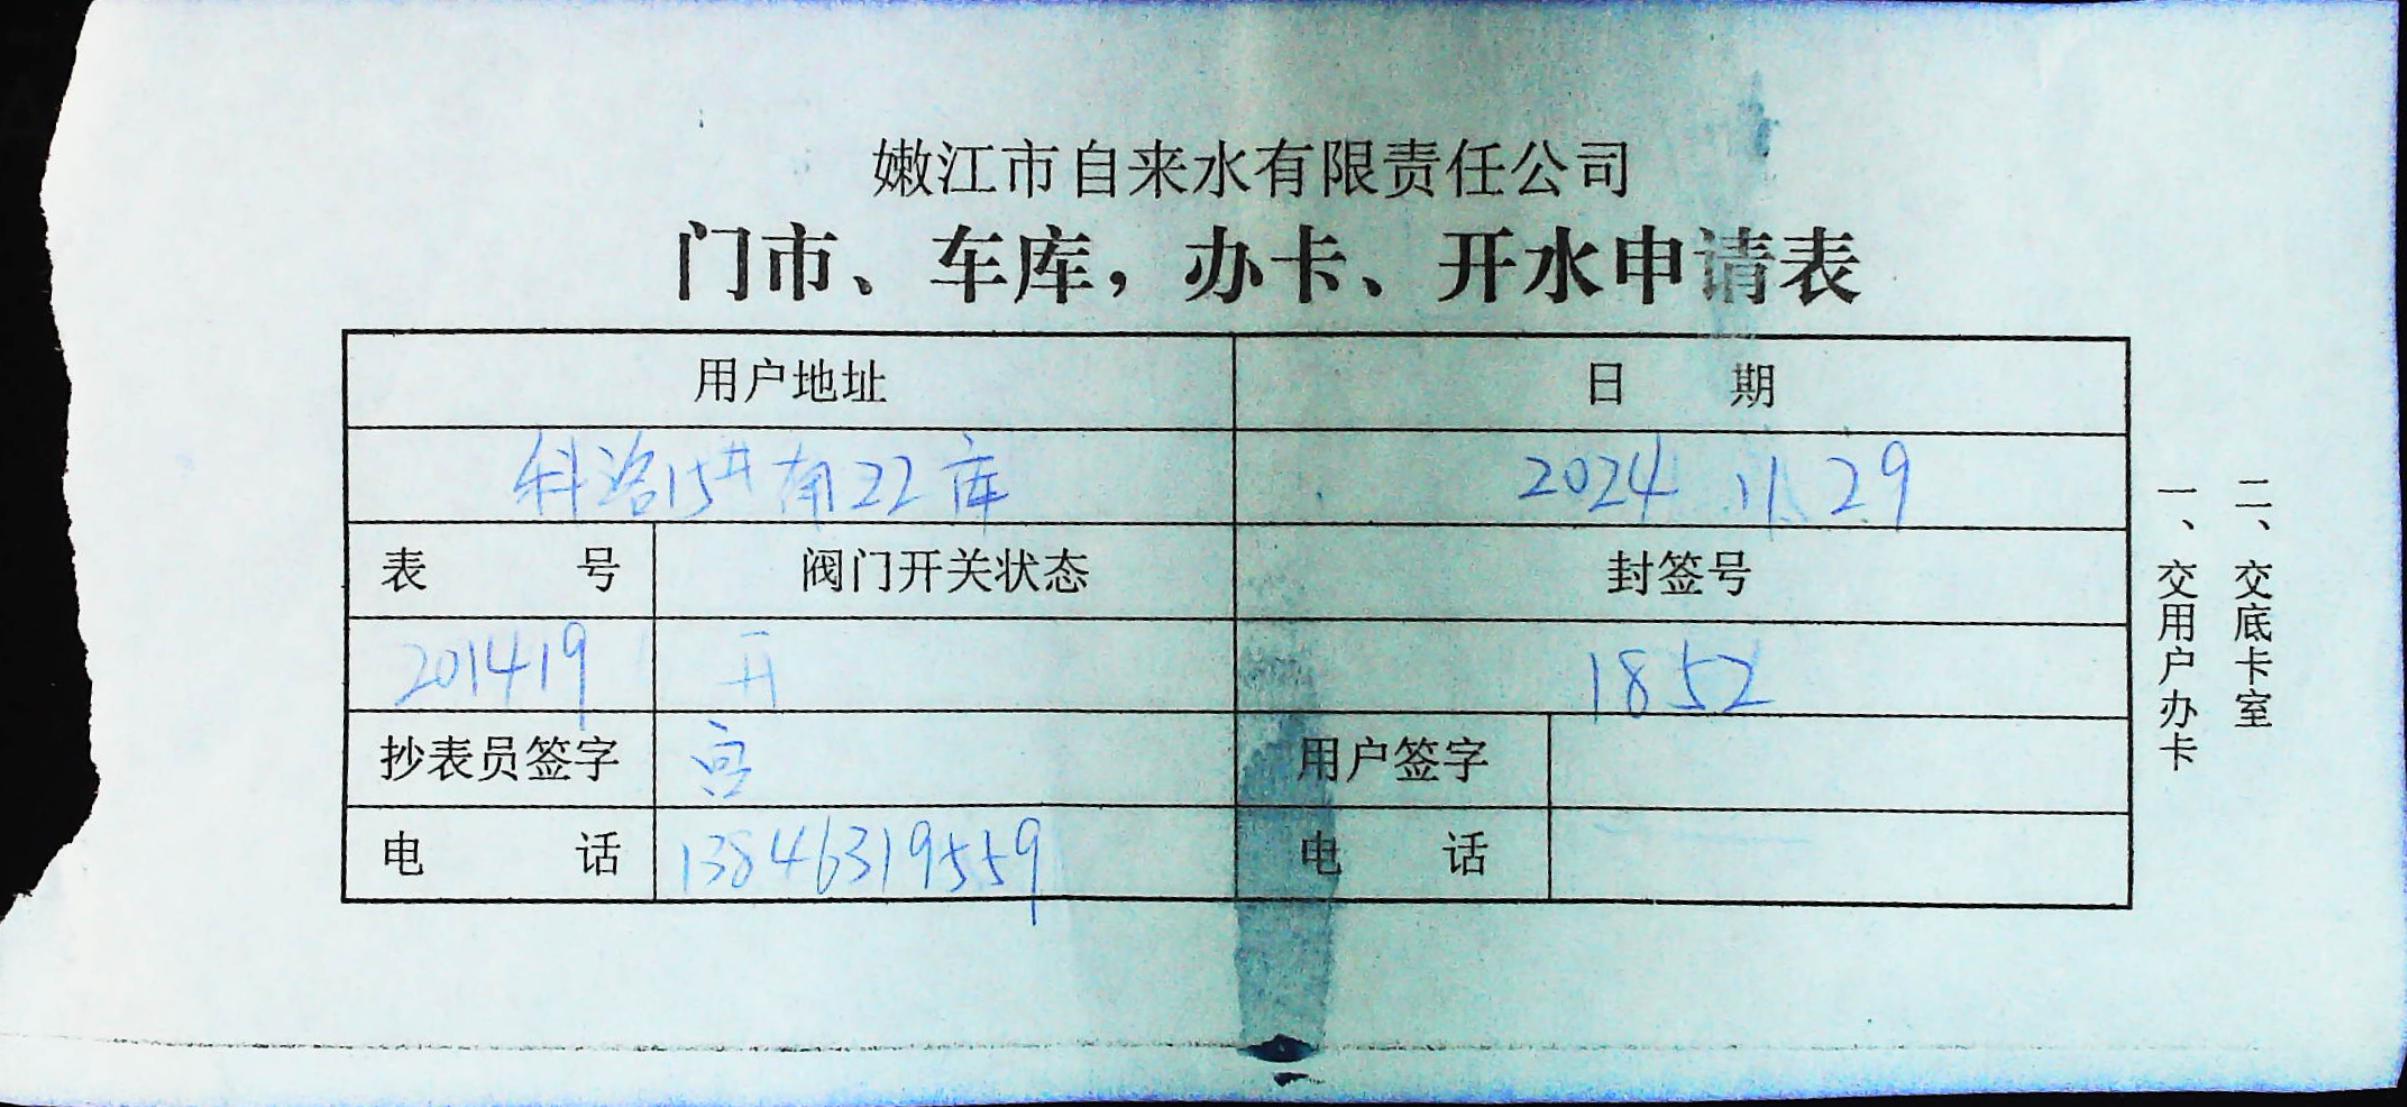 嫩江市自来水有限责任公司
门市、车库，办卡、开水申请表
用户地址 日期
科洛15#南22库 2024.11.29
表号 阀门开关状态 封签号
201419 开 1852
抄表员签字 宫 用户签字
电话 13846319559 电话
一、交用户办卡
二、交底卡室